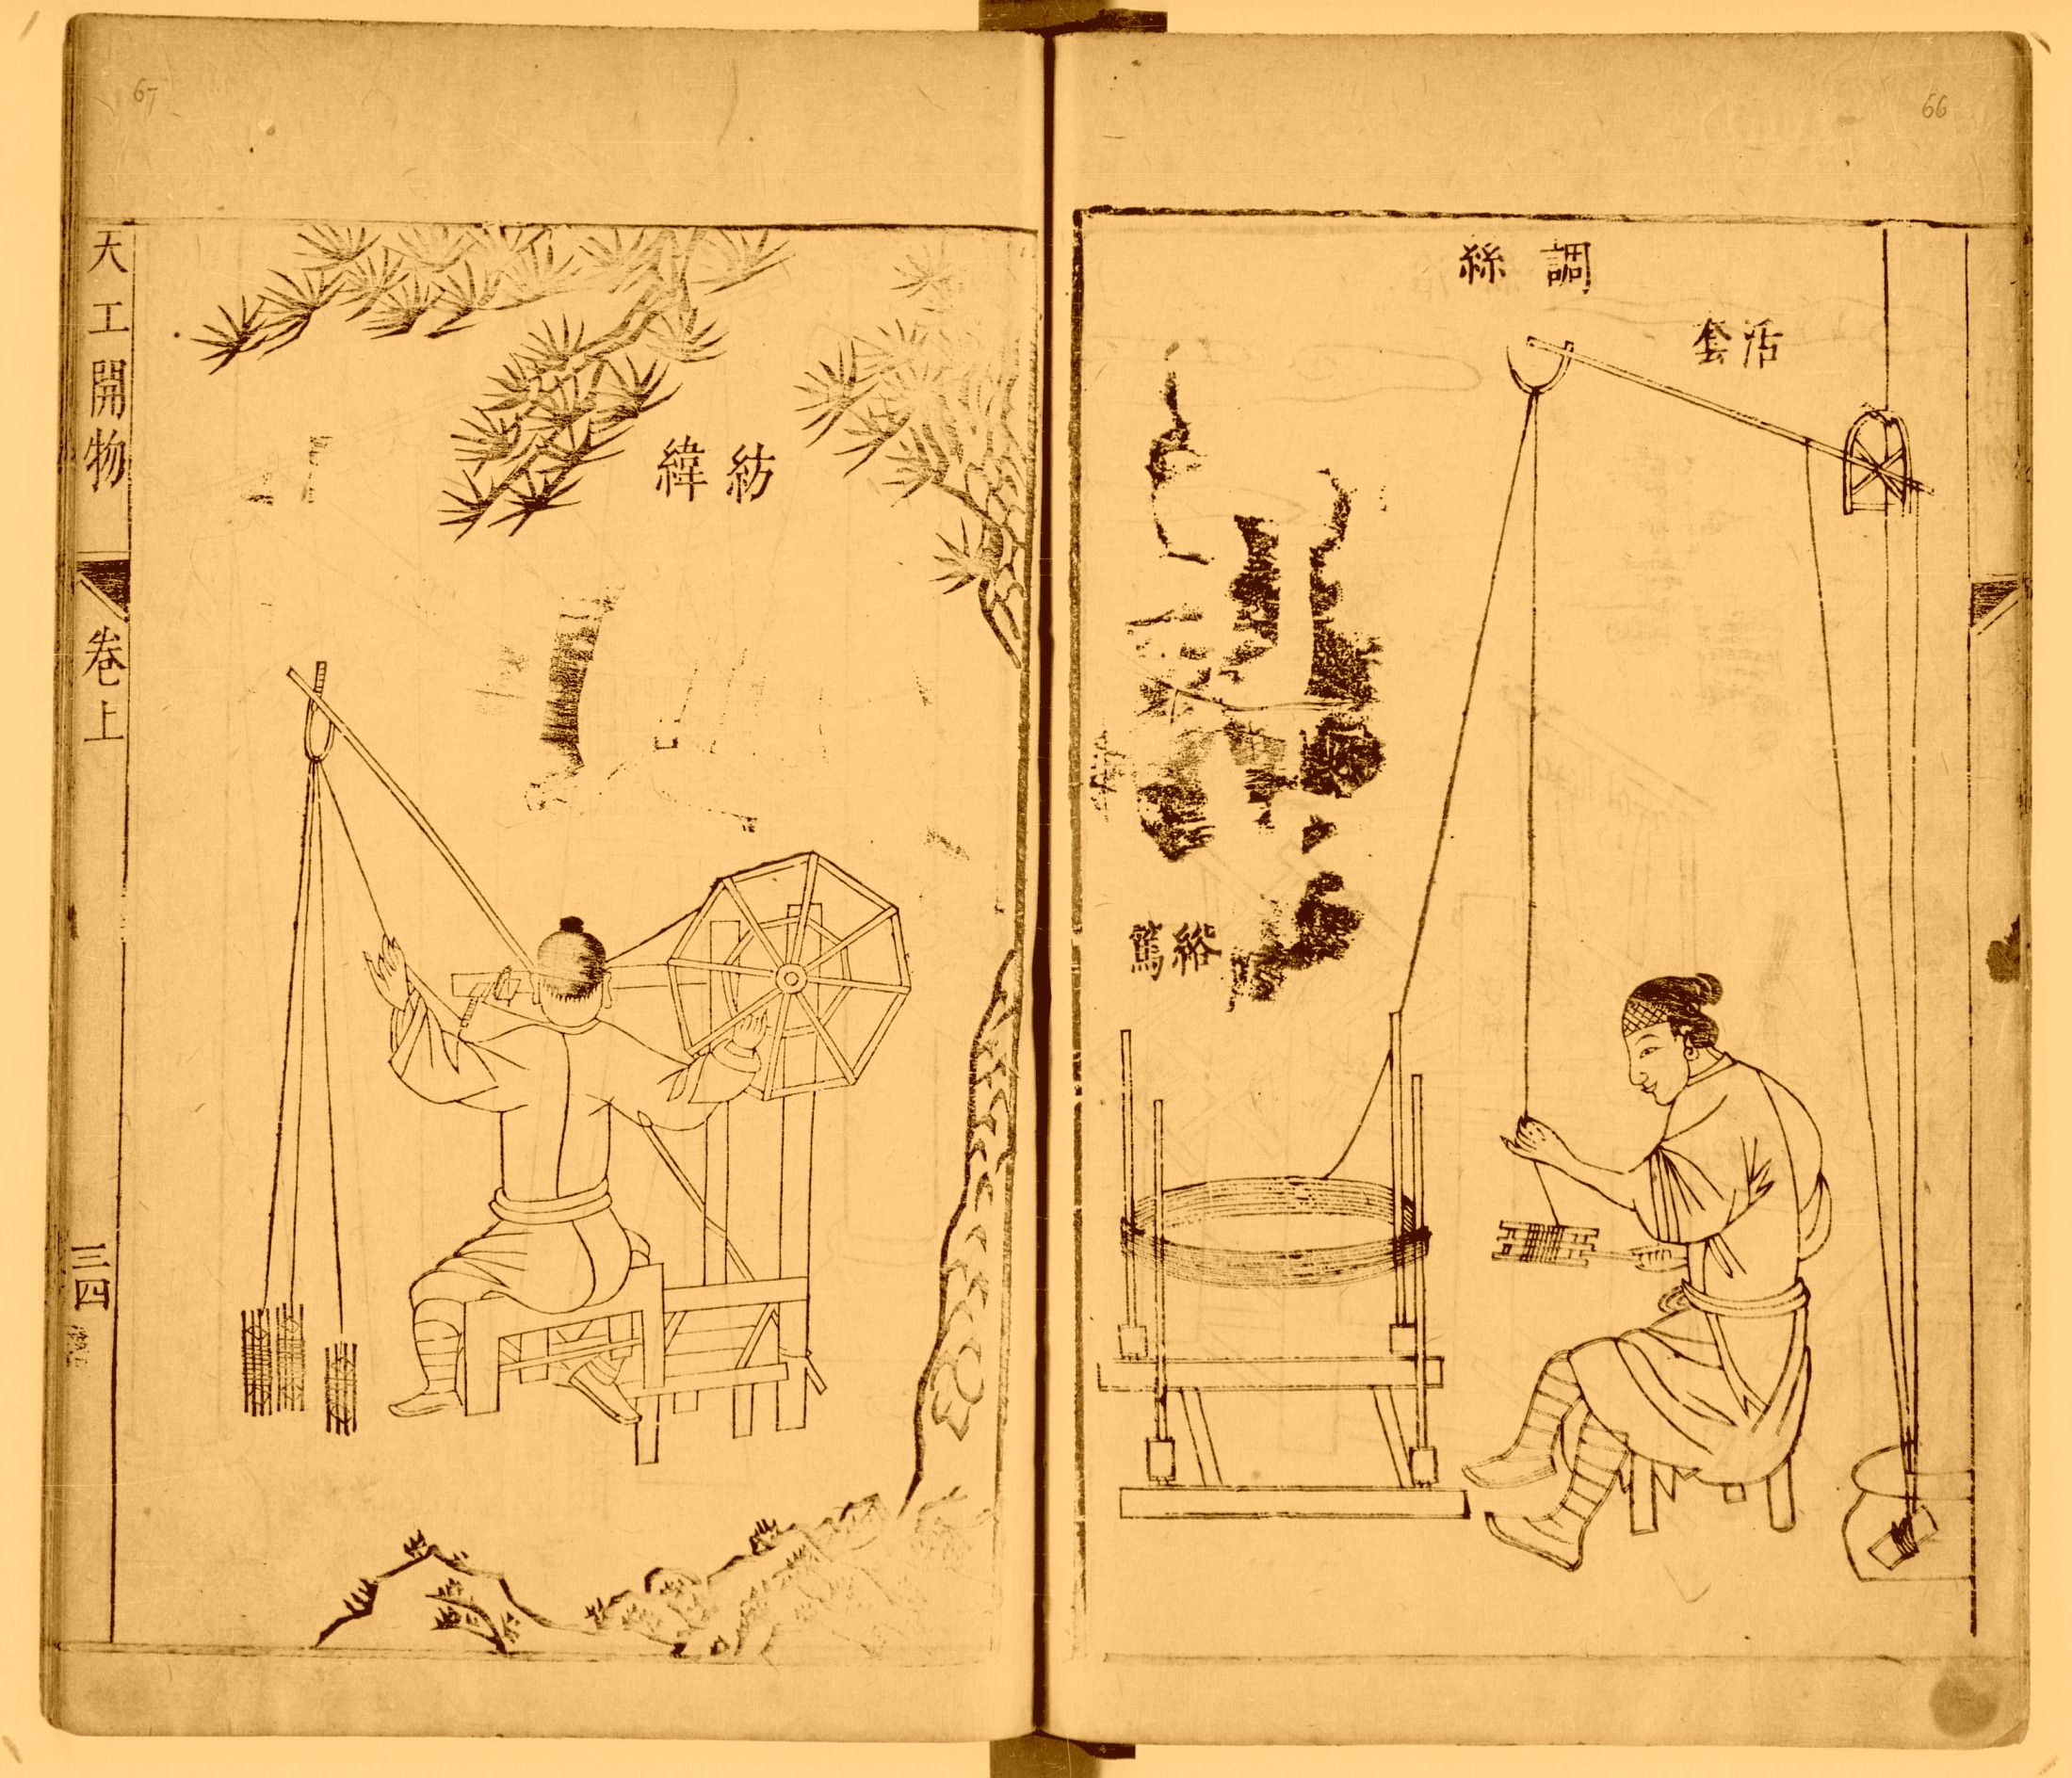 66
調絲
活套
絡篤
67
紡緯
天工開物
卷上
三四